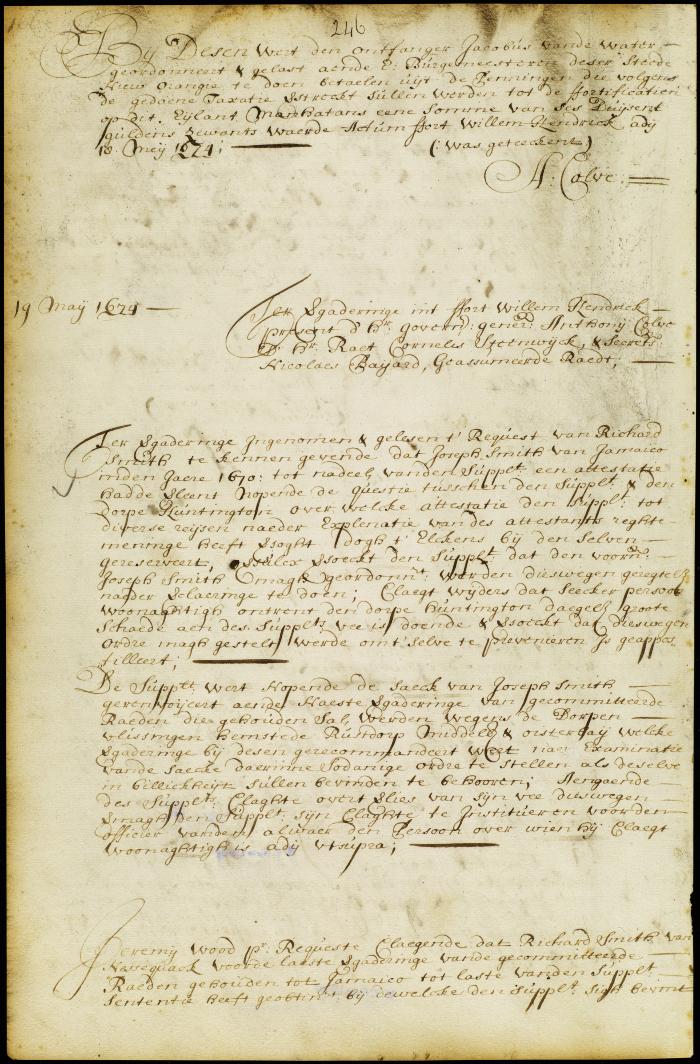 246
By Desen wert den ontfanger Jacobus vande Water
geordonneert & gelast aende E: Burgemeesteren deser Steede
Nieuw orangie te doen betaelen uijt de Penningen die volgens
de gedaene Taxatie verstreckt sullen werden tot de fortificatien
op dit Eijlant Manhatans eene somme van ses Duijsent
guldens zewants waerde Actum ffort Willem Hendrick adij
18. Meij 1674; (: was geteeckent)
A. Colve
19 Maij 1674
Ter vergaderinge int ffort Willem Hendrick
present d'hr. govern: gener: Anthonij Colve
d' hr. Raet Cornelis Steenwijck, & Secrets:
Nicolaes Bayard, Geassumeerde Raedt;
Ter vergaderinge Ingenomen & gelesen t' Request van Richard
Smith te kennen gevende dat Joseph Smith van Jamaico
inden Jaere 1670: tot nadeel vanden Supplt. een attestatie
hadde verleent nopende de questie tusschen den Supplt. & den
Dorpe Huntington over welcke attestatie den Supplt. tot
diverse reijsen naeder Explenatie van des attestants reghte
meninge heeft versoght dogh t' Elckens bij den selven
gereserveert, versoeckt den Supplt. dat den voorn:
Joseph Smith magh geordonnt. werden dieswegen
naeder verclaringe te doen; Claegt wijders dat seecker persoon
woonaghtigh ontrent den dorpe Huntington daegelx groote
schaede aen des Supplts vee is doende & versoeckt dat dieswegen
ordre magh gestelt werde omt' selve te prevenieren Is geappos
tilleert;
De Supplt. wert nopende de saeck van Joseph Smith
gerenvoijeert aende naeste vergaderinge van gecommitteerde
Raeden die gehouden sal werden wegens de Dorpen
vlissingen heemstede Rustdorp Middelb: & oisterbay welcke
vergaderinge bij desen gerecommandeert wert naer Examinatie
vande saecke daerinne sodanige ordre te stellen als deselve
in billickheijt sullen bevinden te behooren; Aengaende
des Supplts. Claghte overt verlies van sijn vee dieswegen
magh den Supplt. sijn Claghte te Institueren voor den
officier vande alwaer den Persoon over wien hij Claegt
woonaghtigh is adij utsupra;
Jeremij Wood pr. Requeste Claegende dat Richard Smith van
Nasequack voorde laeste vergaderinge vande gecommitteerde
Raeden gehouden tot Jamaico tot laste vanden Supplt.
sententie heeft geobtint bij dewelcke den Supplt. sigh bevint